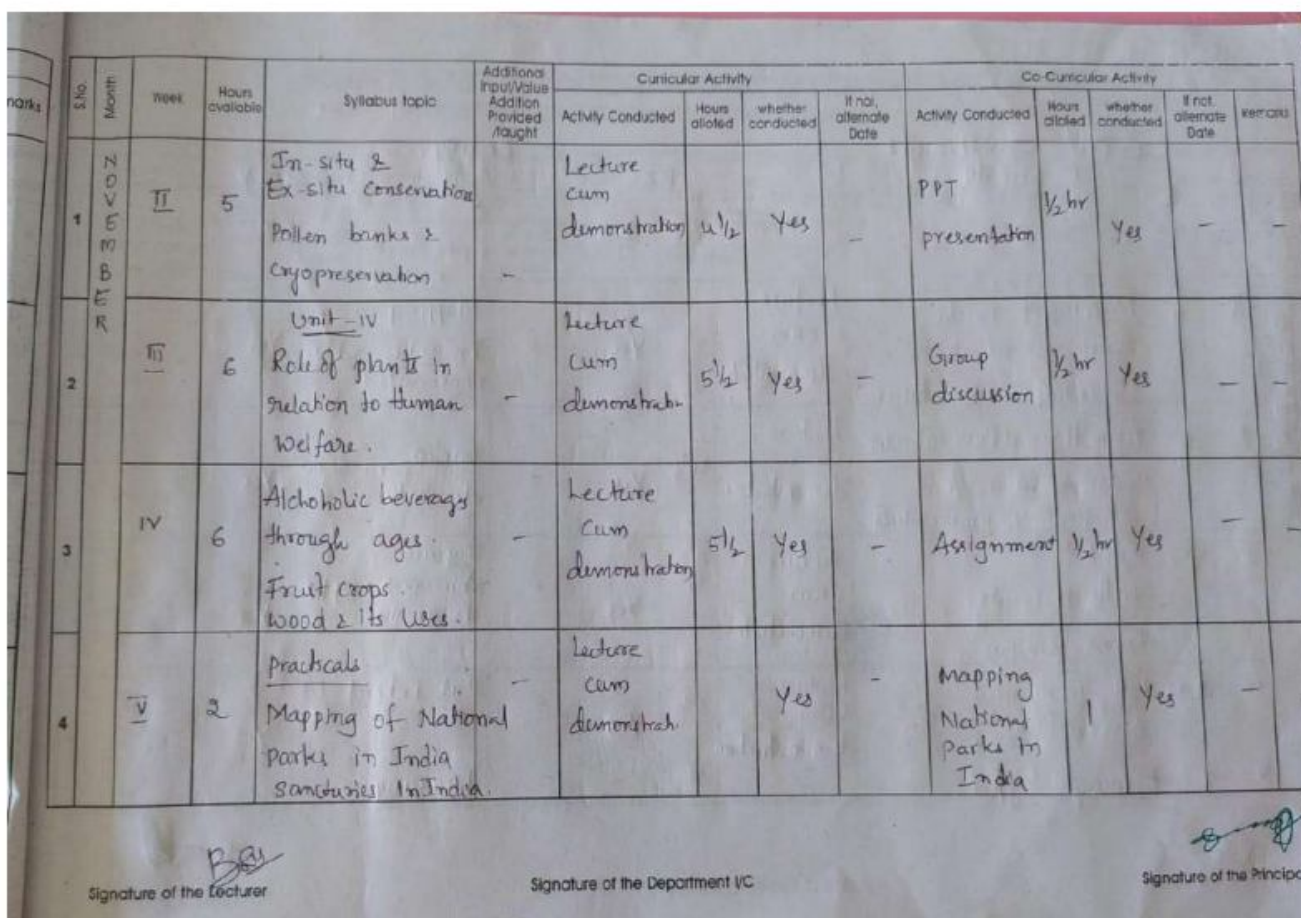 narks
S.No.
Month
Week
Hours
available
Syllabus topic
Additional
Input/Value
Addition
Provided
/taught
Curricular Activity
Activity Conducted
Hours
alloted
whether
conducted
If not,
alternate
Date
Co-Curricular Activity
Activity Conducted
Hours
alloted
whether
conducted
If not,
alternate
Date
Remarks
NOVEMBER
1
II
5
In-situ &
Ex-situ conservation
Pollen banks &
Cryopreservation
-
Lecture
cum
demonstration
4 1/2
Yes
-
PPT
presentation
1/2 hr
Yes
-
-
2
III
6
Unit-IV
Role of plants in
relation to Human
Welfare.
-
Lecture
cum
demonstrath.
5 1/2
Yes
-
Group
discussion
1/2 hr
Yes
-
-
3
IV
6
Alchoholic beverages
through ages.
Fruit crops.
wood & Its Uses.
-
Lecture
Cum
demonstration
5 1/2
Yes
-
Assignment
1/2 hr
Yes
-
-
4
V
2
Practicals
Mapping of National
Parks in India
Sancturies In India.
-
Lecture
cum
demonstrah.
Yes
-
Mapping
National
Parks in
India
1
Yes
-
Signature of the Lecturer
Signature of the Department I/C
Signature of the Principa